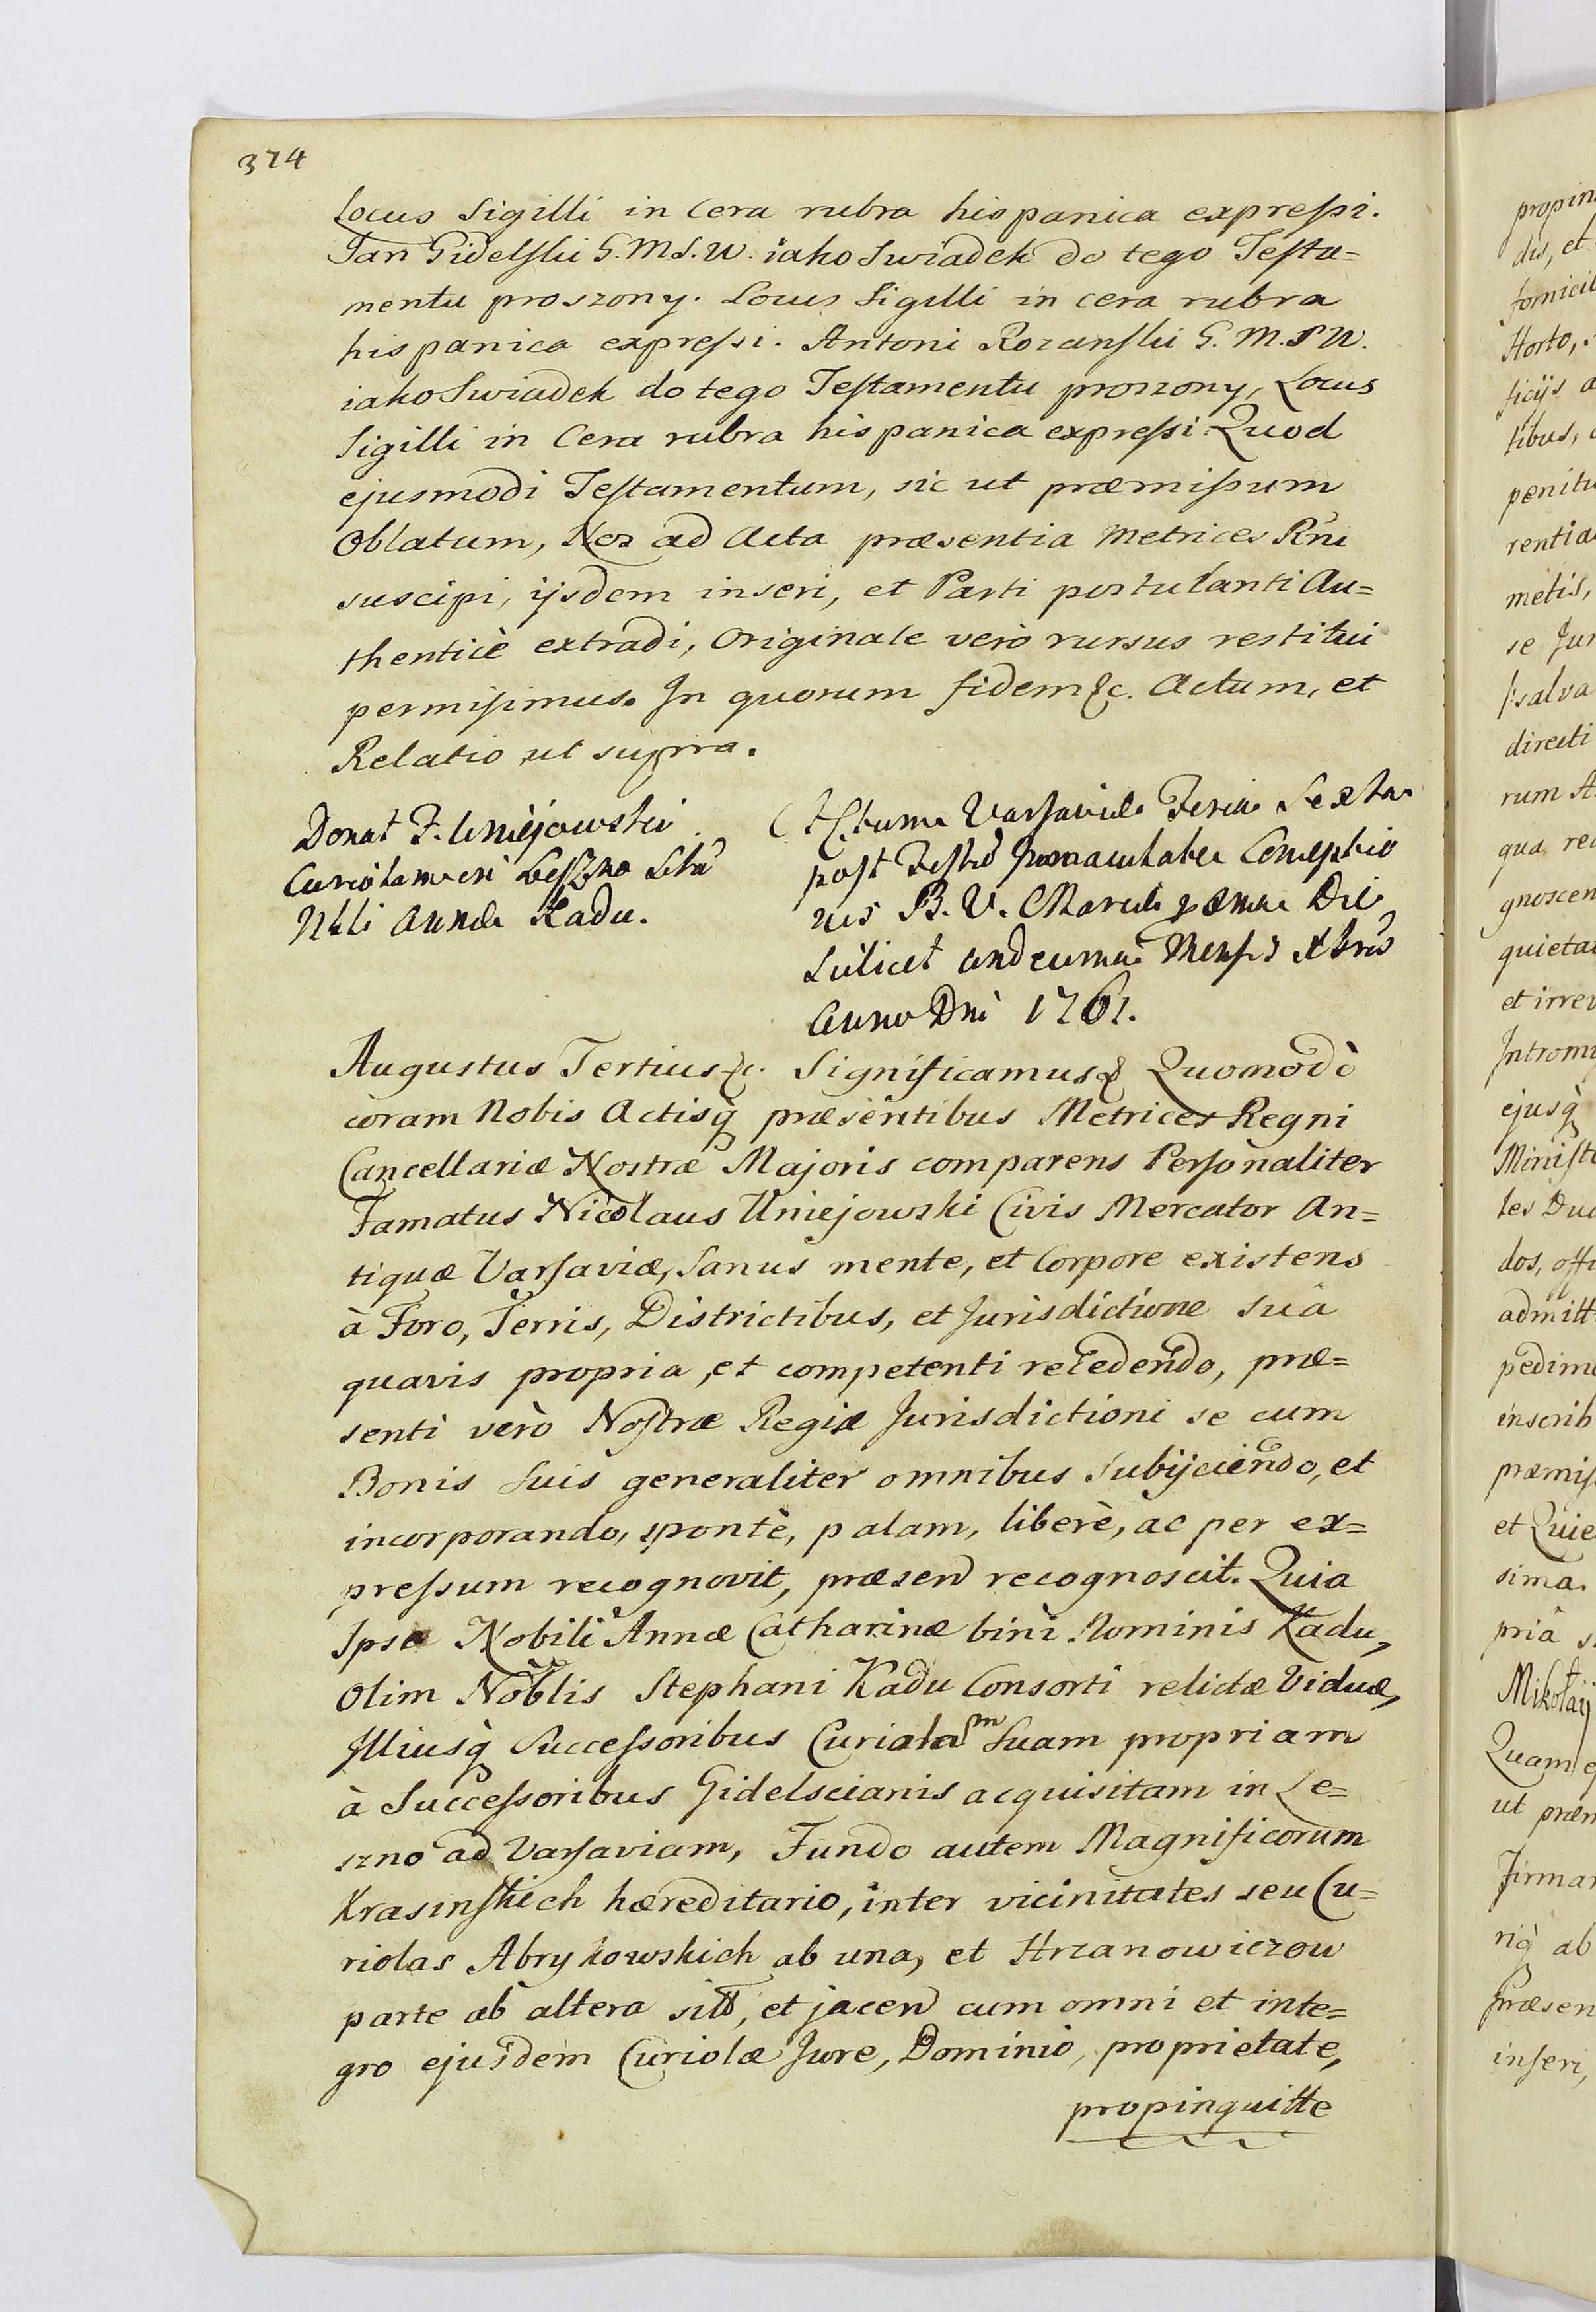 374
Locus Sigilli in Cera rubra hispanica expreſsi.
Jan Gidelſki G.M.S.W. iako Swiadek do tego Teſta=
mentu proszony. Locus Sigilli in cera rubra
hispanica expreſsi. Antoni Rozanſki G.M.S.W.
iako Swiadek do tego Teſtamentu proszony, Locus
Sigilli in Cera rubra hispanica expreſsi. Quod
ejusmodi Teſtamentum, sic ut præmiſsum
Oblatum, Nos ad Acta præsentia Metrices Rni
suscipi, ijsdem inseri, et Parti postulanti Au=
thenticè extradi, Originale verò rursus restitui
permiſimus. In quorum fidem &c. Actum, et
Relatio ut supra.
Donat F. Uniejowski
Curiolam in Leſzno Sita
Nbli Annæ Kadu.
Actum Varſaviæ Feria Sexta
post Feſtũ Immaculatæ Conceptio
nis B. V. Mariæ Die
Scilicet undecima Menſis Xbris
Anno Dni 1761.
Augustus Tertius &c. Significamus & Quomodò
coram Nobis Actisq̀ præsentibus Metrices Regni
Cancellariæ Nostræ Majoris comparens Perſonaliter
Famatus Nicolaus Uniejowski Civis Mercator An=
tiquæ Varſaviæ, Sanus mente, et Corpore existens
à Foro, Terris, Districtibus, et Jurisdictione suâ
quavis propria, et competenti recedendo, præ=
senti verò Noſtræ Regiæ Jurisdictioni se cum
Bonis Suis generaliter omnibus Subijciendo, et
incorporando, spontè, palam, liberè, ac per ex=
preſsum recognovit, præsen recognoscit. Quia
Ipse Nobili Annæ Catharinæ bini Nominis Kadu,
Olim Noblis Stephani Kadu Consorti relictæ Viduæ,
Illiusq̀ Succeſsoribus Curiolam Suam propriam
à Succeſsoribus Gidelscianis acquisitam in Le=
szno ad Varſaviam, Fundo autem Magnificorum
Krasinſkich hæreditario, inter vicinitates seu Cu=
riolas Abrykowskich ab una, et Hrzanowiczow
parte ab altera sitt, et jacen cum omni et inte=
gro ejusdem Curiolæ Jure, Dominio, proprietate,
propinquitte
propin
dis, et
fornicib
Horto,
ficijs a
tibus,
penitu
rentia
metis,
se Jur
salva
directi
rum A
qua rec
gnoscen
quieta
et irrev
Intromi
ejusq̀
Miniſt
les Duc
dos, offi
admitt
pedime
inscrib
præmiſ
et Quie
sima.
priâ s
Mikołaij
Quam e
ut præm
Firmar
riq̀ ab
Præsen
inſeri,